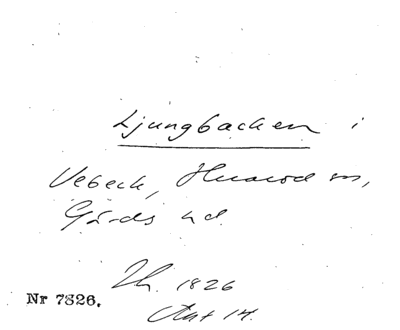 Ljungbacken i
Vebeck, Huaröd sn,
Gärds hd
1826
Nr 7326.
Akt 14.